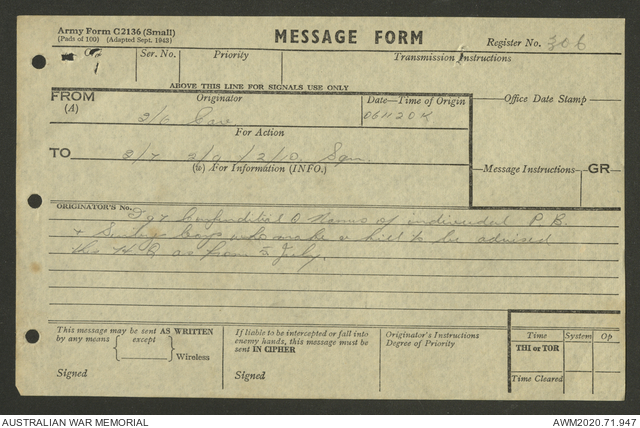 Army Form C2136 (Small)
(Pads of 100) (Adapted Sept. 1943)
MESSAGE FORM
Register No. 306
Ser. No.
Priority
Transmission Instructions
ABOVE THIS LINE FOR SIGNALS USE ONLY
FROM
(A)
Originator
Date—Time of Origin
Office Date Stamp
2/6 Cav
061120K
For Action
TO
2/7 2/9 2/10 Sqn.
(w) For Information (INFO.)
Message Instructions
GR
ORIGINATOR'S No.
of individual P.B.
+ who make a hit to be advised
this H.Q. as from 5 July.
This message may be sent AS WRITTEN
by any means
except
Wireless
Signed
If liable to be intercepted or fall into
enemy hands, this message must be
sent IN CIPHER
Signed
Originator's Instructions
Degree of Priority
Time
System
Op
THI or TOR
Time Cleared
AUSTRALIAN WAR MEMORIAL
AWM2020.71.947